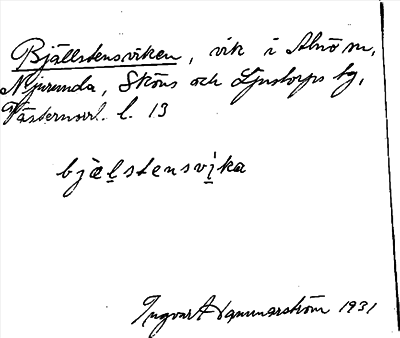 Bjällstensviken, vik i Alnö m,
Njurunda, Sköns och Ljustorps tg,
Västernorrl. l. 13
bjælstensvika
Ingvar Hammarström 1931